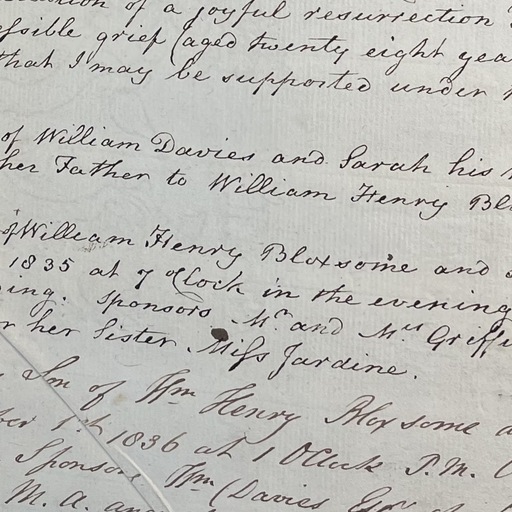 of a joyful resurrection
grief (aged twenty eight
that I may be supported under
of William Davies and Sarah his
her Father to William Henry
of William Henry Bloxsome and
1835 at 7 oClock in the evening
Sponsors Mr. and Mrs
her Sister Miss Jardine.
Son of Wm Henry Bloxsome
1st 1836 at 1 OClock P.M.
Sponsors Wm Davies Esqr
M. A. and